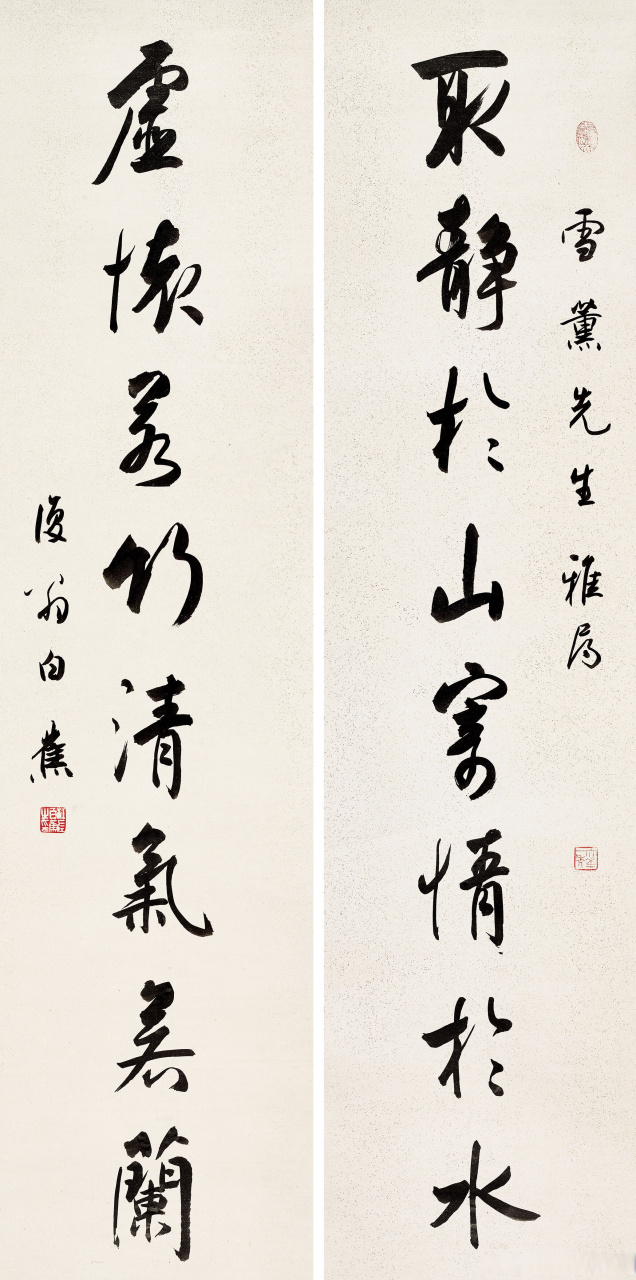 雪薰先生雅屬
取靜於山寄情於水
虛懷若竹清氣若蘭
復翁白蕉